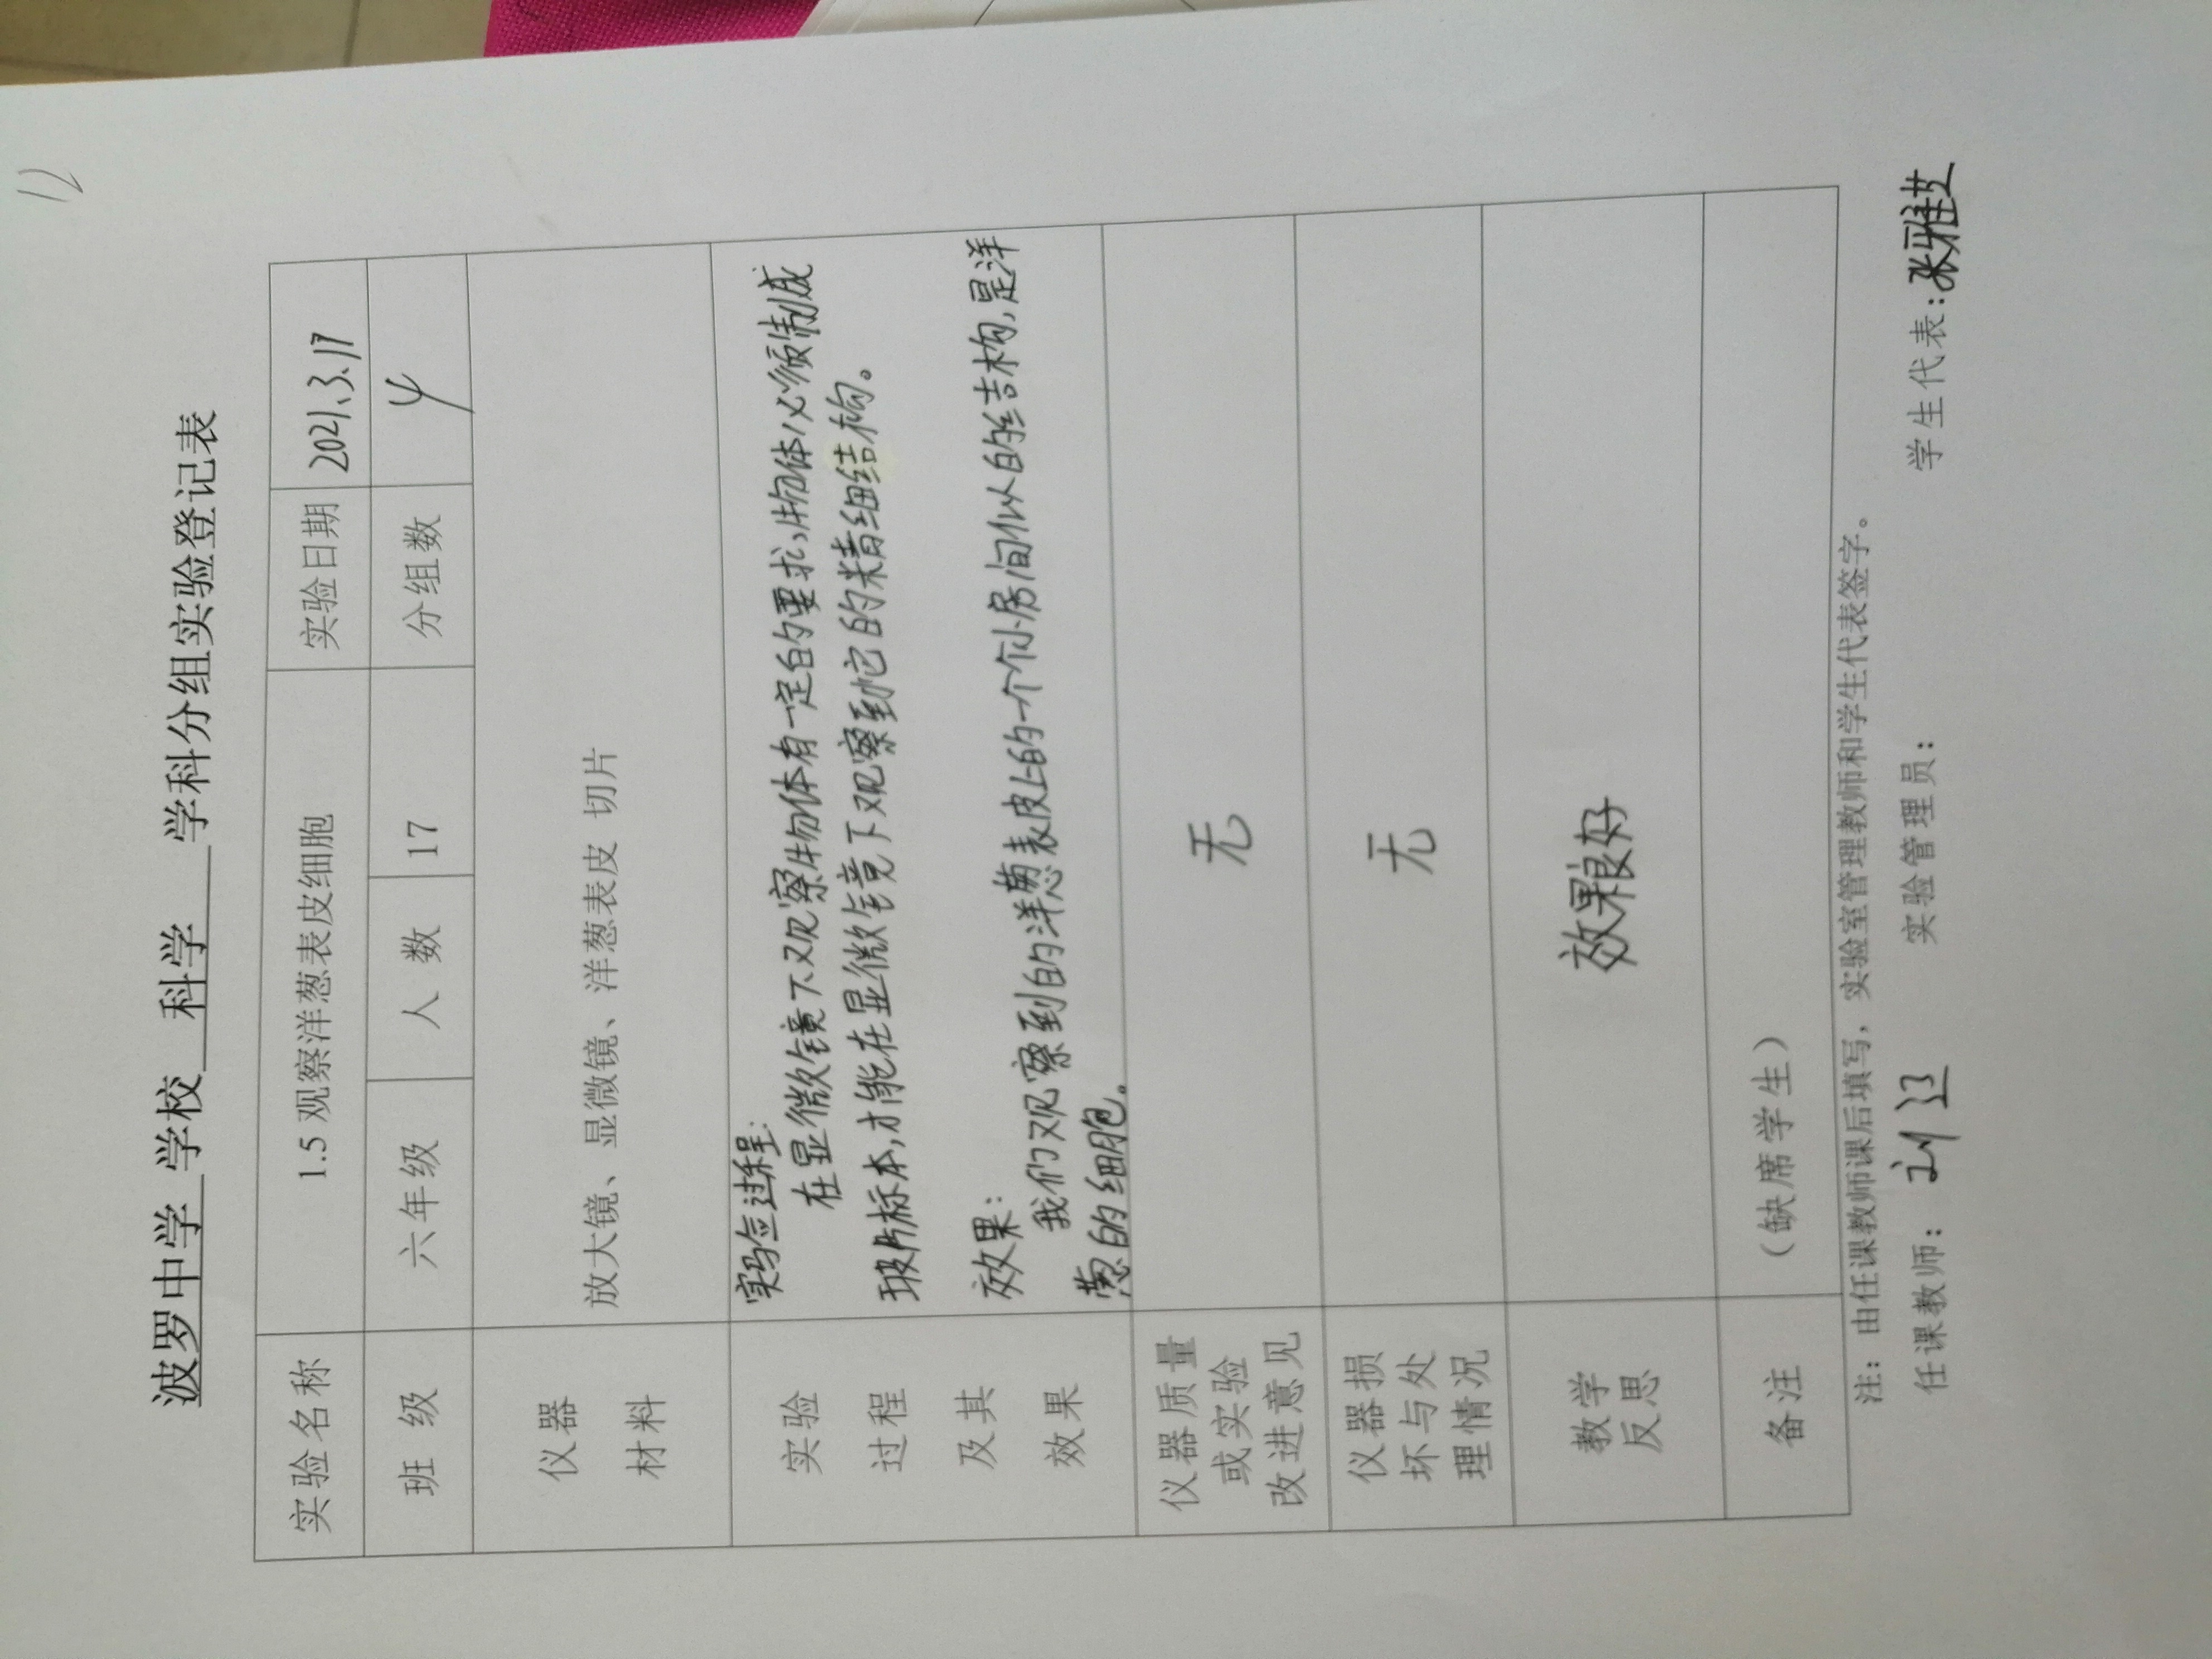 12
波罗中学 学校 科学 学科分组实验登记表
实验名称 1.5 观察洋葱表皮细胞 实验日期 2021.3.17
班 级 六年级 人 数 17 分组数 4
仪器
材料
放大镜、显微镜、洋葱表皮 切片
实验
过程
及其
效果
实验过程:
在显微镜下观察物体有一定的要求,物体必须制成
玻片标本,才能在显微镜下观察到它的精细结构。
效果:
我们观察到的洋葱表皮上的一个个小房间似的结构,是洋
葱的细胞。
仪器质量
或实验
改进意见
无
仪器损
坏与处
理情况
无
教学
反思
效果良好
备注 (缺席学生)
注:由任课教师课后填写,实验室管理教师和学生代表签字。
任课教师: 刘 实验管理员: 学生代表:张雅